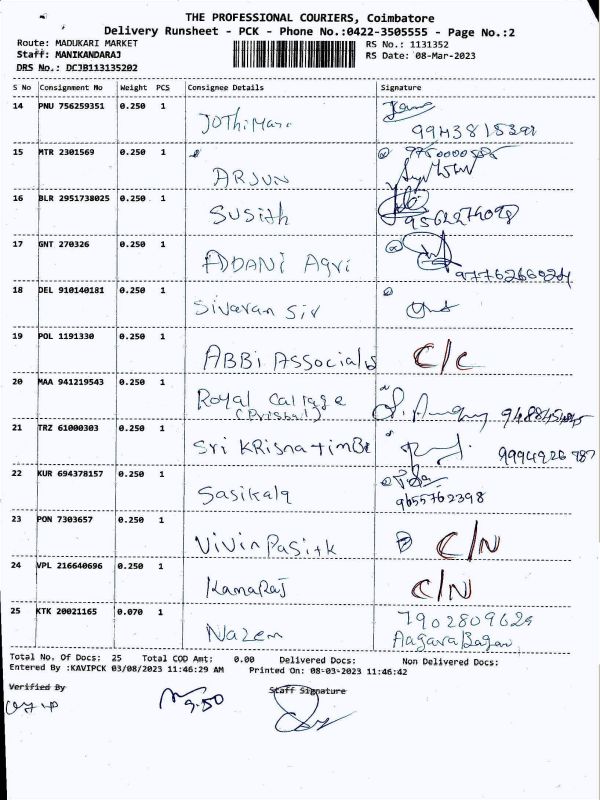 THE PROFESSIONAL COURIERS, Coimbatore
Delivery Runsheet - PCK - Phone No.:0422-3505555 - Page No.:2
Route: MADUKARI MARKET RS No.: 1131352
Staff: MANIKANDARAJ RS Date: 08-Mar-2023
DRS No.: DCJB113135202
S No Consignment No Weight PCS Consignee Details Signature
14 PNU 756259351 0.250 1
15 MTR 2301569 0.250 1 ARJUN
16 BLR 2951738025 0.250 1 Susith
17 GNT 270326 0.250 1 ADDANi Agri
18 DEL 910140181 0.250 1 Sivaran Sir
19 POL 1191330 0.250 1 ABBi C/c
20 MAA 941219543 0.250 1 Royal
21 TRZ 61000303 0.250 1 Sri KRisna
22 KUR 694378157 0.250 1 Sasikala
9655762398
23 PON 7303657 0.250 1 C/N
24 VPL 216640696 0.250 1 KamaRaj C/N
25 KTK 20021165 0.070 1 Nazem 7902809629
Total No. Of Docs: 25 Total COD Amt: 0.00 Delivered Docs: Non Delivered Docs:
Entered By :KAVIPCK 03/08/2023 11:46:29 AM Printed On: 08-03-2023 11:46:42
Verified By Staff Signature
9.50